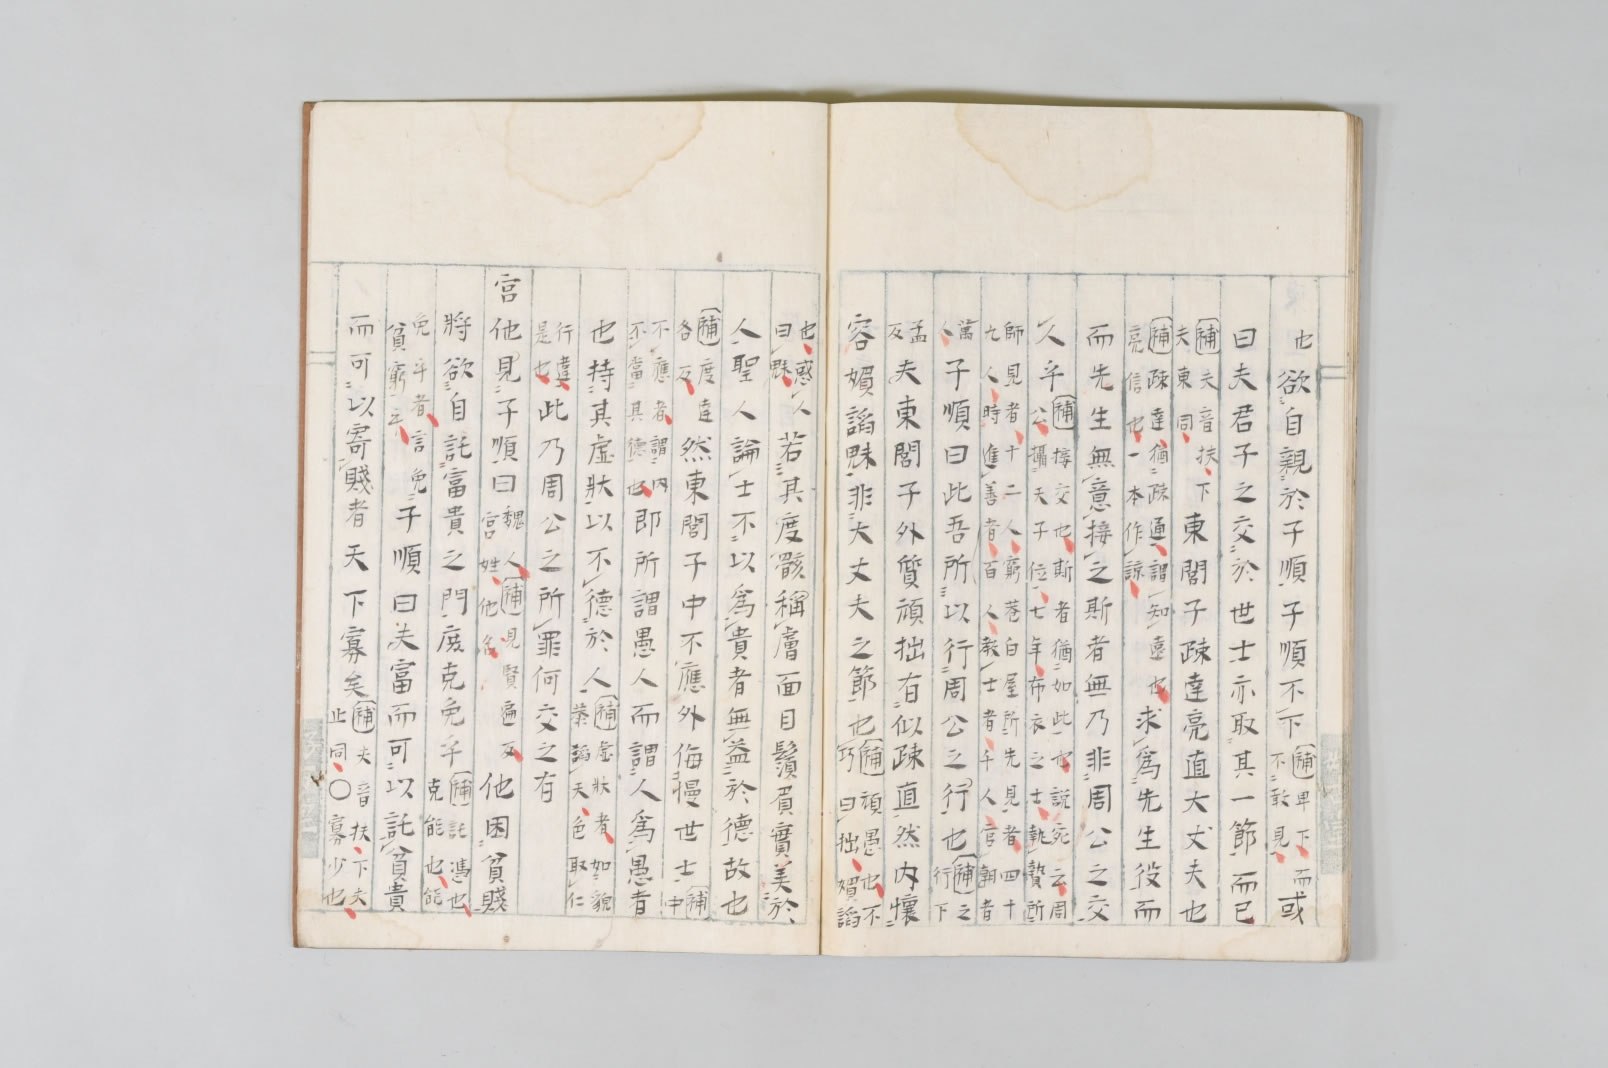 也欲自親於子順子順不下補卑下而不敢見而或
曰夫君子之交於世士亦取其一節而已
補夫音扶下夫東同東閭子疎達亮直大丈夫也
補疎達猶疎通謂知遠也亮信也一本作諒求爲先生役而
而先生無意接之斯者無乃非周公之交
人乎補接交也斯者猶如此也說苑云周公攝天子位七年布衣之士執贄所
師見者十二人窮巷白屋所先見者四十九人時進善者百人教士者千人官朝者
萬人子順曰此吾所以行周公之行也補之行下
孟反夫東閭子外質頑拙有似疎直然內懷
容媚諂魅非大丈夫之節也補頑愚也不巧曰拙媚諂
也惑人曰魅若其度骸稱膚面目鬢眉實美於
人聖人論士不以爲貴者無益於德故也
補度達各反然東閭子中不應外侮慢世士補中
不應者謂內不當其德也即所謂愚人而謂人爲愚者
也持其虛狀以不德於人補虛狀者如貌恭諂天色取仁
行違是也此乃周公之所罪何交之有
宮他見子順曰魏人宮姓他名補見賢遍反他困貧賤
將欲自託富貴之門庶克免乎補託憑也克能也能
免乎者言免貧窮云子順曰夫富而可以託貧貴
而可以寄賤者天下寡矣補夫音扶下夫止同〇寡少也